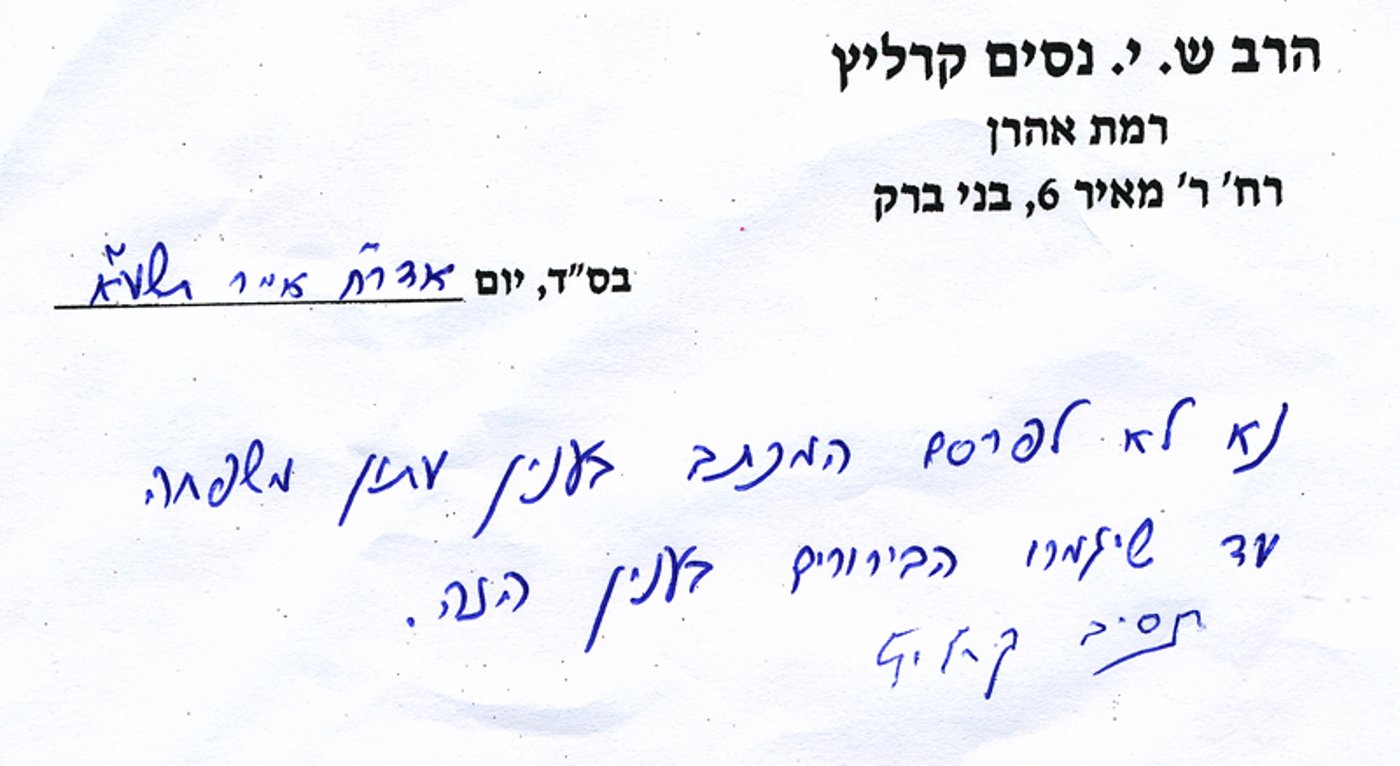 הרב ש. י. נסים קרליץ
רמת אהרן
רח' ר' מאיר 6, בני ברק
בס"ד, יום אדר"ח אייר תשע"א
נא לא לפרסם המכתב בענין עתון משפחה
עד שיגמרו הבירורים בענין הזה.
נסים קרליץ